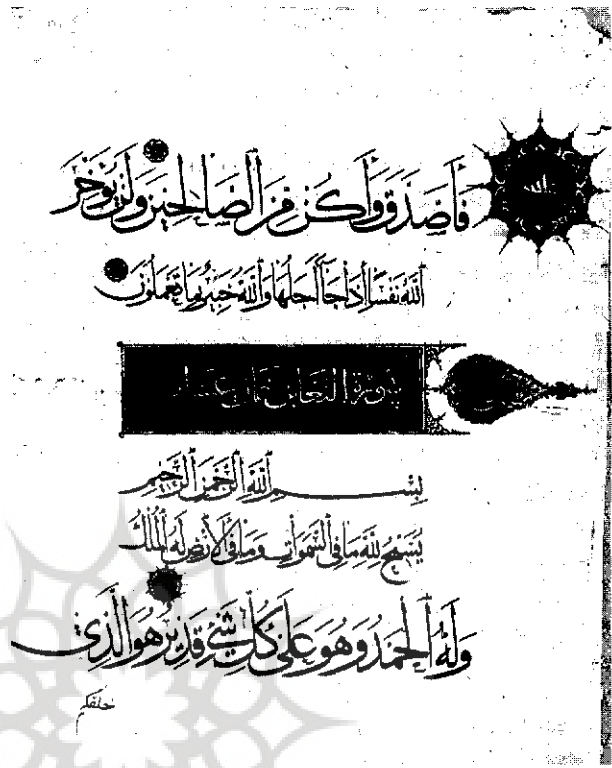 فَأَصَّدَّقَ وَأَكُن مِّنَ ٱلصَّالِحِينَ وَلَن يُؤَخِّرَ
ٱللَّهُ نَفْسًا إِذَا جَآءَ أَجَلُهَا وَٱللَّهُ خَبِيرٌ بِمَا تَعْمَلُونَ
سورة التغابن ثمان عشر
بِسْمِ ٱللَّهِ ٱلرَّحْمَٰنِ ٱلرَّحِيمِ
يُسَبِّحُ لِلَّهِ مَا فِي ٱلسَّمَوَاتِ وَمَا فِي ٱلْأَرْضِ لَهُ ٱلْمُلْكُ
وَلَهُ ٱلْحَمْدُ وَهُوَ عَلَىٰ كُلِّ شَيْءٍ قَدِيرٌ هُوَ ٱلَّذِي
خلقكم